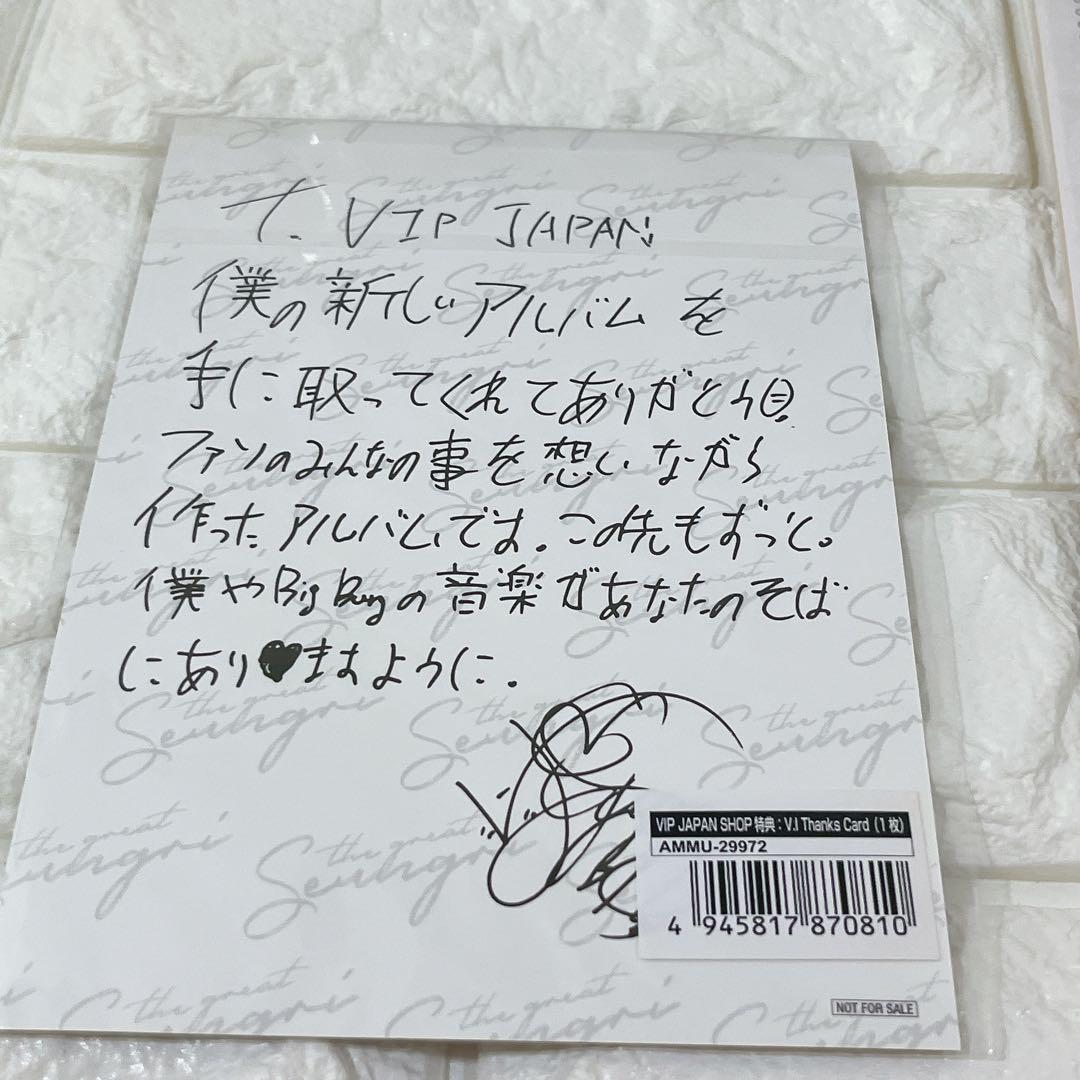 T. VIP JAPAN
僕の新しいアルバムを
手に取ってくれてありがとう
ファンのみんなの事を想いながら
作ったアルバムです。この先もずっと。
僕やBigBangの音楽があなたのそば
にあり♥ますように。
VIP JAPAN SHOP特典:V.I Thanks Card (1枚)
AMMU-29972
4 945817 870810
NOT FOR SALE
the great
Seungri